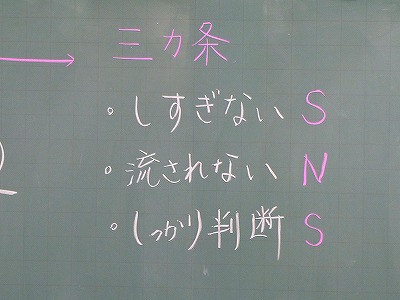 三カ条
・しすぎない S
・流されない N
・しっかり判断 S